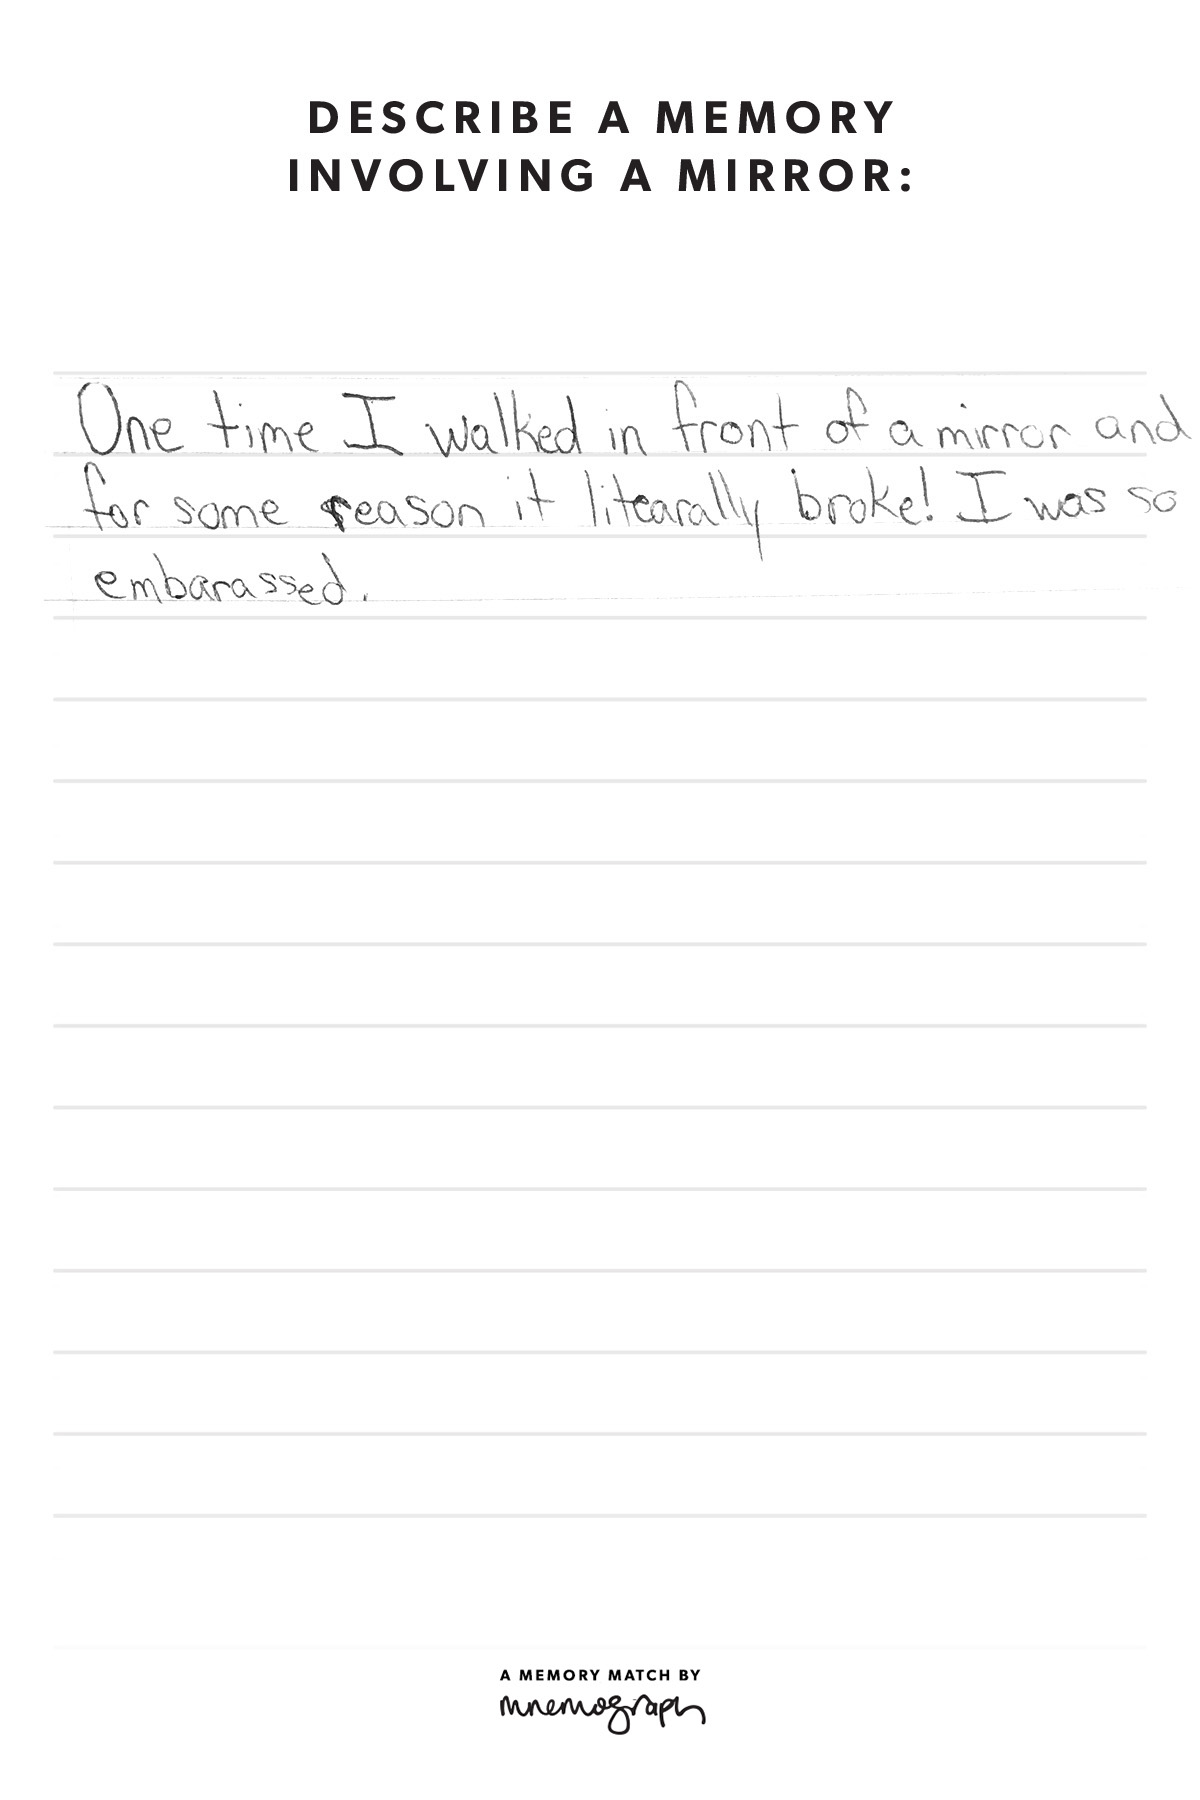 DESCRIBE A MEMORY
INVOLVING A MIRROR:
One time I walked in front of a mirror and
for some reason it litearally broke! I was so
embarassed.
A MEMORY MATCH BY
mnemograph